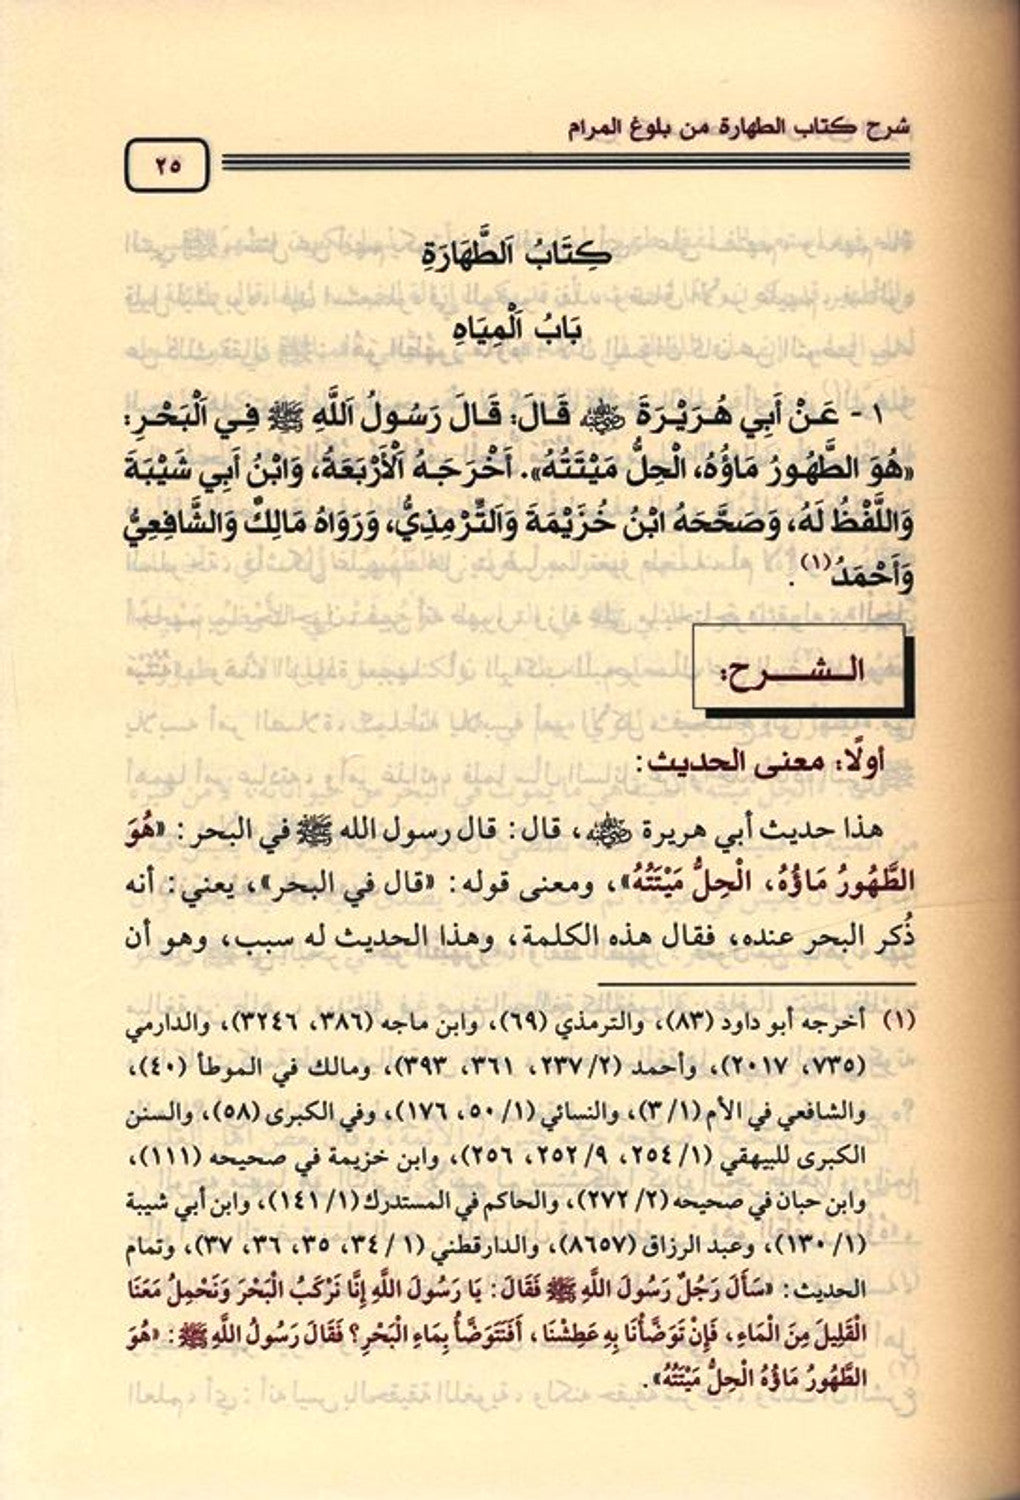 شرح كتاب الطهارة من بلوغ المرام
٢٥
كِتَابُ اَلطَّهَارَةِ
بَابُ اَلْمِيَاهِ
١ - عَنْ أَبِي هُرَيْرَةَ رضي الله عنه قَالَ: قَالَ رَسُولُ اَللَّهِ ﷺ فِي اَلْبَحْرِ:
«هُوَ الطَّهُورُ مَاؤُهُ، الْحِلُّ مَيْتَتُهُ». أَخْرَجَهُ اَلْأَرْبَعَةُ، وَابْنُ أَبِي شَيْبَةَ
وَاللَّفْظُ لَهُ، وَصَحَّحَهُ ابْنُ خُزَيْمَةَ وَاَلتِّرْمِذِيُّ، وَرَوَاهُ مَالِكٌ وَالشَّافِعِيُّ
وَأَحْمَدُ(١).
الـشــــرح:
أولًا: معنى الحديث:
هذا حديث أبي هريرة رضي الله عنه، قال: قال رسول الله ﷺ في البحر: «هُوَ
الطَّهُورُ مَاؤُهُ، الْحِلُّ مَيْتَتُهُ»، ومعنى قوله: «قال في البحر»، يعني: أنه
ذُكر البحر عنده، فقال هذه الكلمة، وهذا الحديث له سبب، وهو أن
(١) أخرجه أبو داود (٨٣)، والترمذي (٦٩)، وابن ماجه (٣٨٦، ٣٢٤٦)، والدارمي
(٧٣٥، ٢٠١٧)، وأحمد (٢/ ٢٣٧، ٣٦١، ٣٩٣)، ومالك في الموطأ (٤٠)،
والشافعي في الأم (١/ ٣)، والنسائي (١/ ٥٠، ١٧٦)، وفي الكبرى (٥٨)، والسنن
الكبرى للبيهقي (١/ ٢٥٤، ٩/ ٢٥٢، ٢٥٦)، وابن خزيمة في صحيحه (١١١)،
وابن حبان في صحيحه (٢/ ٢٧٢)، والحاكم في المستدرك (١/ ١٤١)، وابن أبي شيبة
(١/ ١٣٠)، وعبد الرزاق (٨٦٥٧)، والدارقطني (١ / ٣٤، ٣٥، ٣٦، ٣٧)، وتمام
الحديث: «سَأَلَ رَجُلٌ رَسُولَ اللَّهِ ﷺ فَقَالَ: يَا رَسُولَ اللَّهِ إِنَّا نَرْكَبُ الْبَحْرَ وَنَحْمِلُ مَعَنَا
الْقَلِيلَ مِنَ الْمَاءِ، فَإِنْ تَوَضَّأْنَا بِهِ عَطِشْنَا، أَفَنَتَوَضَّأُ بِمَاءِ الْبَحْرِ؟ فَقَالَ رَسُولُ اللَّهِ ﷺ: «هُوَ
الطَّهُورُ مَاؤُهُ الْحِلُّ مَيْتَتُهُ».